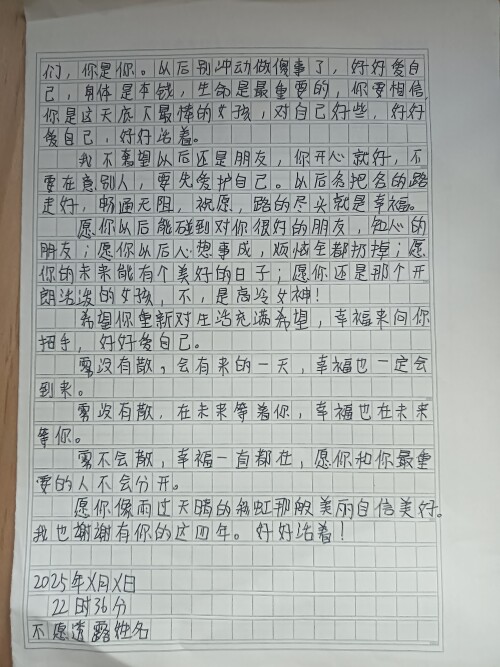 们，你是你。以后别冲动做傻事了，好好爱自
己，身体是本钱，生命是最重要的，你要相信
你是这天底下最棒的女孩，对自己好些，好好
爱自己，好好活着。
我不奢望以后还是朋友，你开心就好，不
要在意别人，要先爱护自己。以后各把各的路
走好，畅通无阻，祝愿，路的尽头就是幸福。
愿你以后能碰到对你很好的朋友，知心的
朋友；愿你以后心想事成，烦恼全都扔掉；愿
你的未来能有个美好的日子；愿你还是那个开
朗活泼的女孩，不，是高冷女神！
希望你重新对生活充满希望，幸福来向你
招手，好好爱自己。
雾没有散，会有来的一天，幸福也一定会
到来。
雾没有散，在未来等着你，幸福也在未来
等你。
雾不会散，幸福一直都在，愿你和你最重
要的人不会分开。
愿你像雨过天晴的彩虹那般美丽自信美好。
我也谢谢有你的这四年。好好活着！
2025年X月X日
22时36分
不愿透露姓名